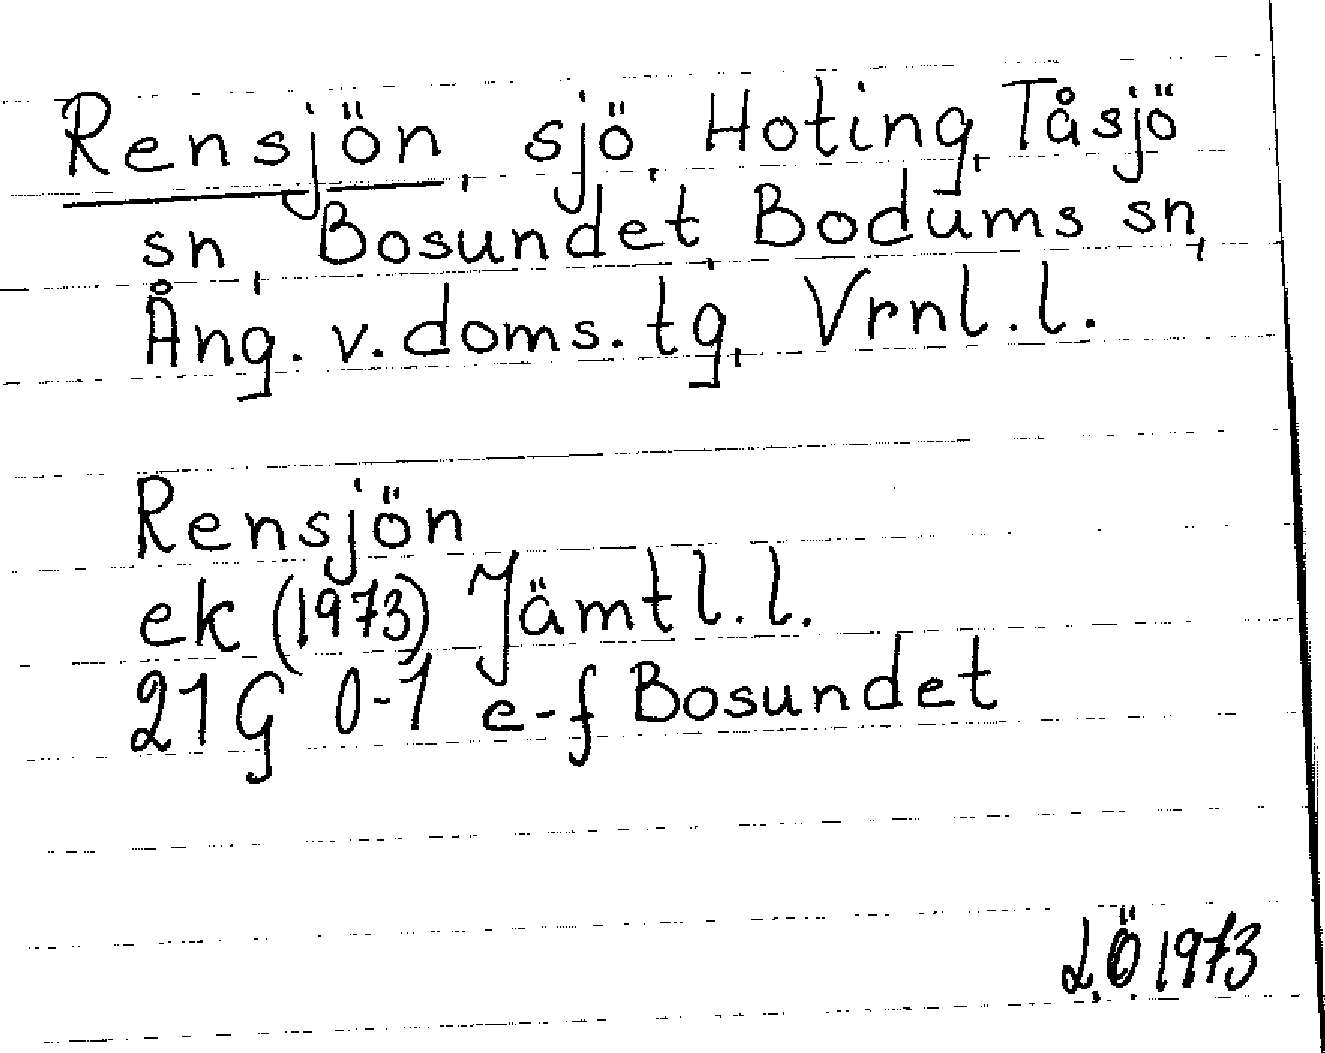 Rensjön, sjö, Hoting, Tåsjö
sn, Bosundet, Bodums sn,
Ång. v. doms. tg, Vrnl. l.
Rensjön
ek (1973) Jämtl. l.
21G 0-1 e-f Bosundet
L.Ö. 1973